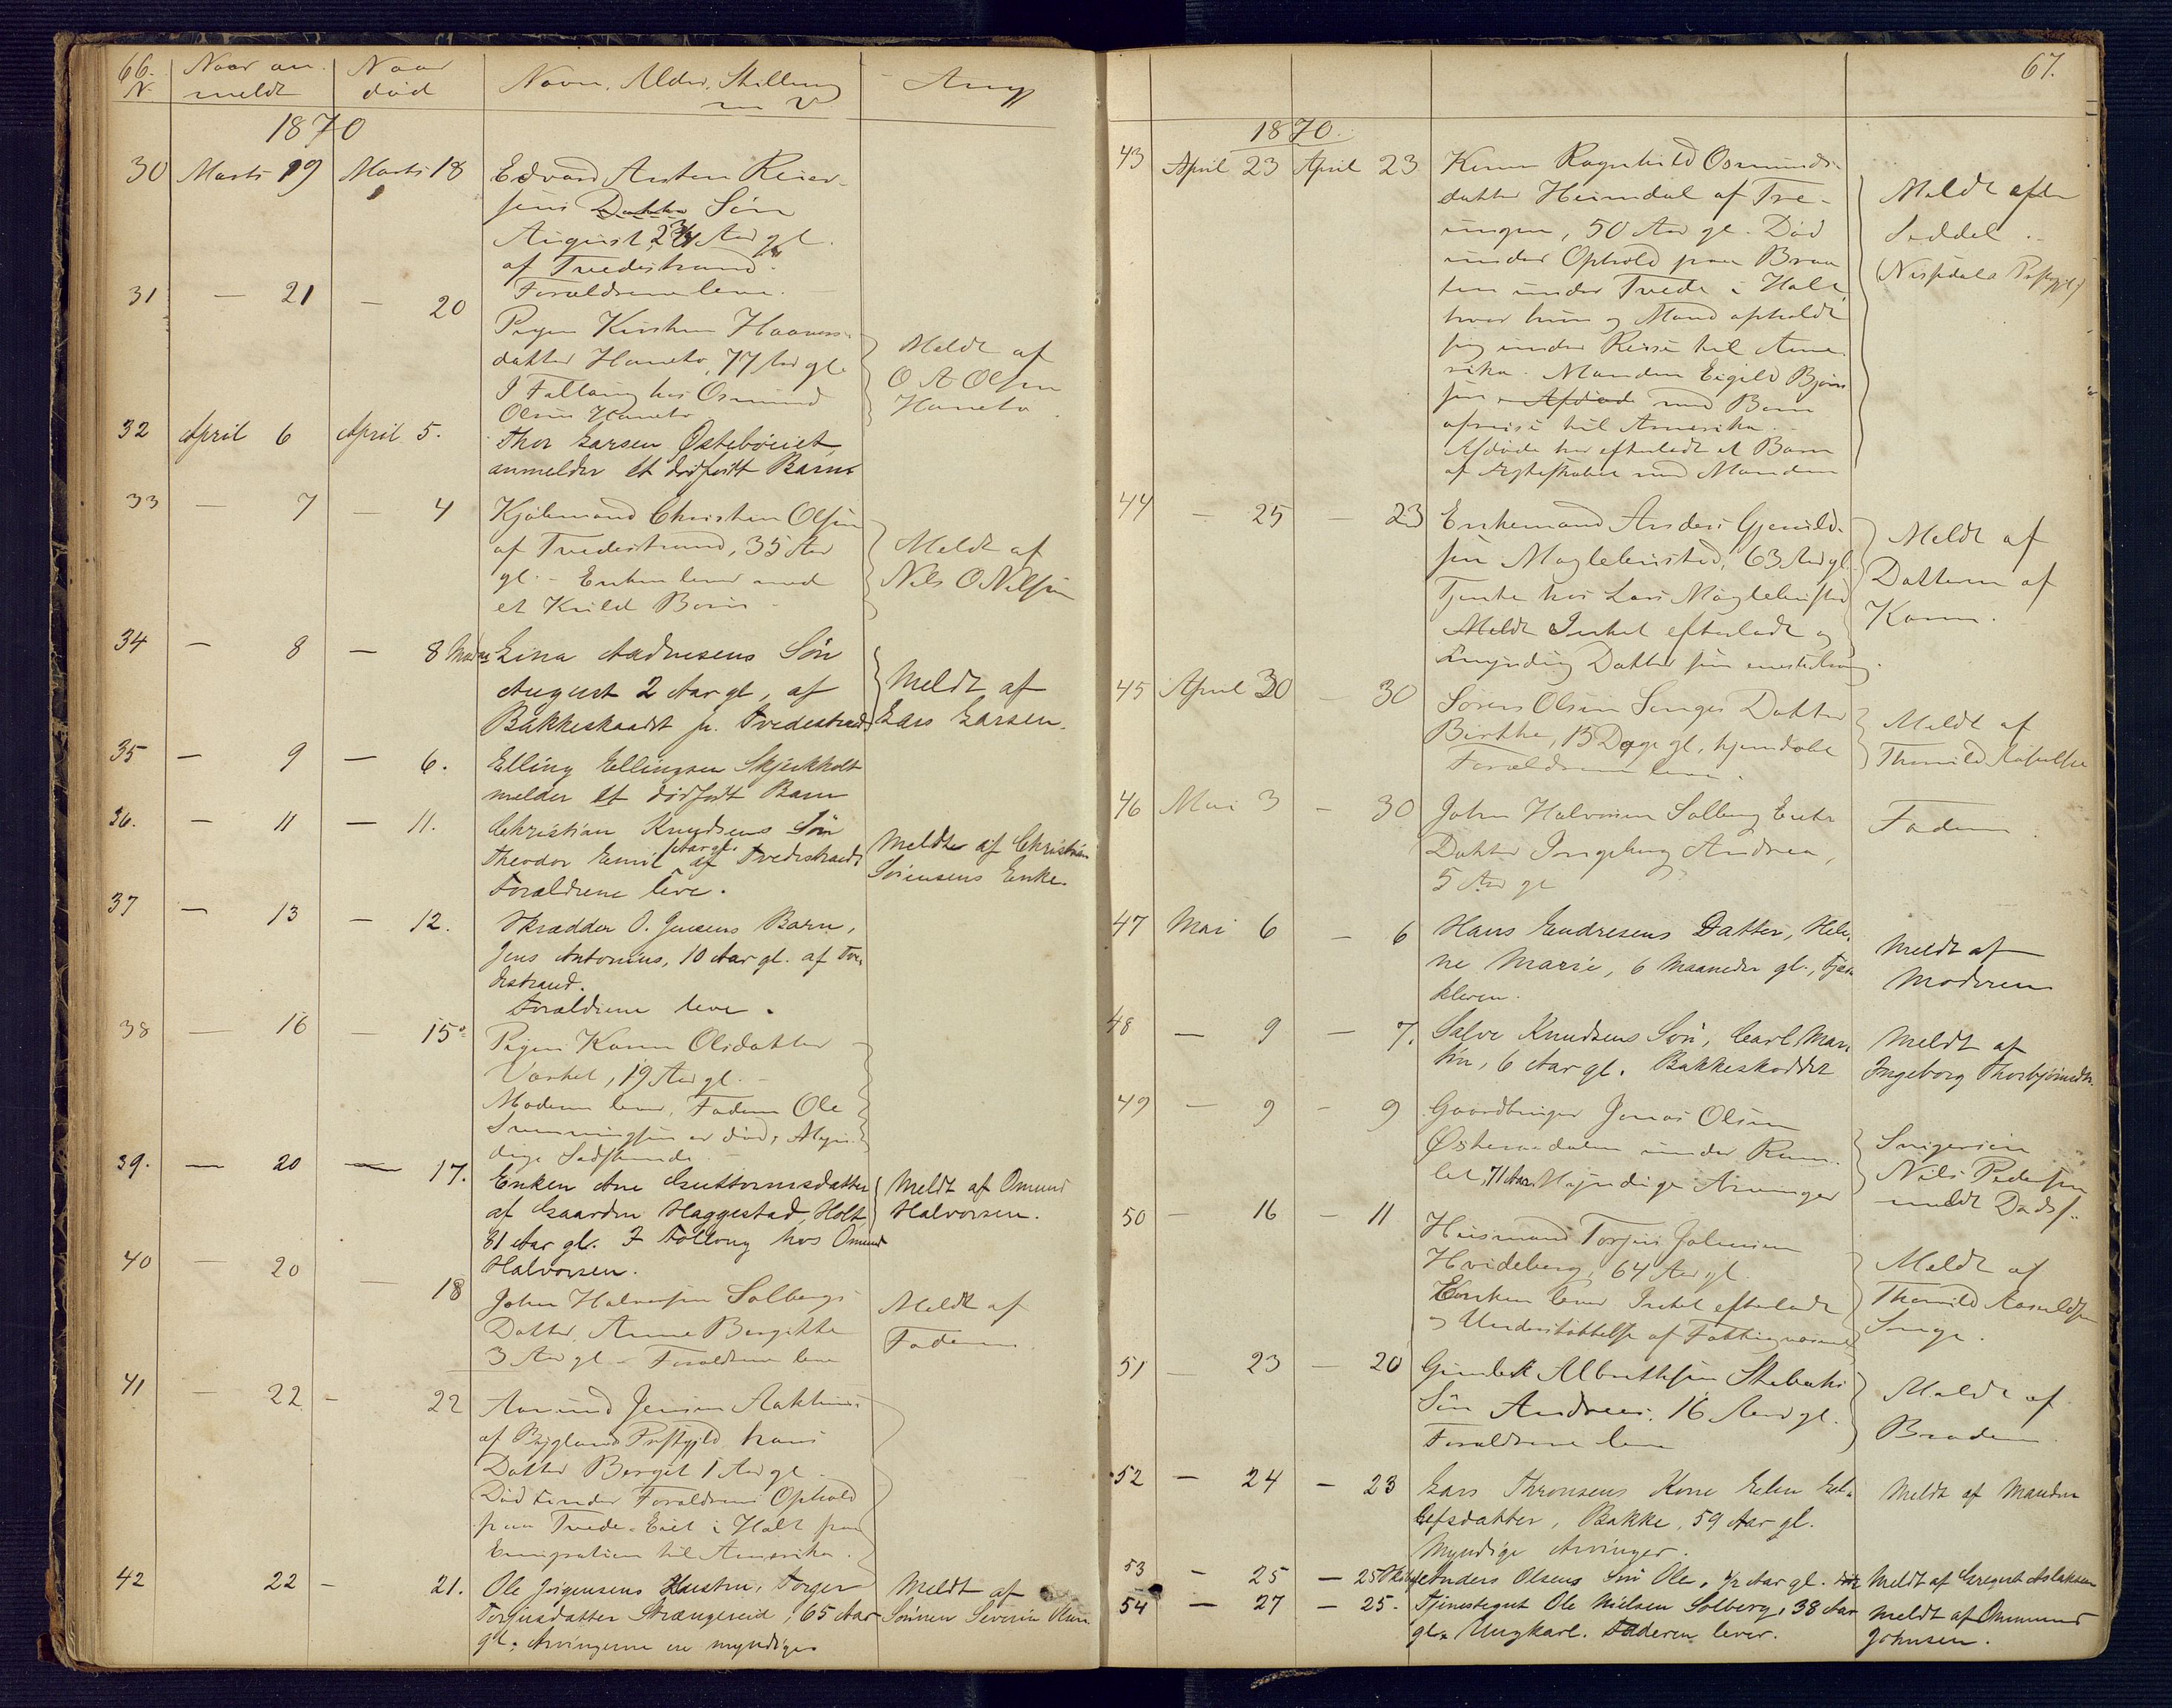 66.
N. Naar anmeldt Naar død Navn, Alder, Stilling m v. Anm
1870
30 Marts 19 Marts 18 Edvard Anton Reier-
sens Datter Søn
August, 2 3/4 Aar gl.
af Tvedestrand.
Forældrene leve.
31 — 21 — 20 Pigen Kirsten Haavors-
datter Haneto, 77 Aar gl. Meldt af
I Føllaug hos Osmund O A Olsen
Olsen Haneto Haneto.
32 April 6 April 5. Thor Larsen Østebøeiet
anmelder et dødfødt Barn
33 — 7 — 4 Kjøbmand Christen Olsen
af Tvedestrand, 35 Aar Meldt af
gl. – Enken lever med Nils O Nilsen
et Kuld Børn.
34 — 8 — 8 Lina Andresens Søn
August 2 Aar gl, af Meldt af
Bakkeskaadt pr. Tvedestrand Lars Larsen.
35 — 9 — 6. Elling Ellingsen Skjerkholt
melder et dødfødt Barn
36. — 11 — 11. Christian Knudsens Søn
Theodor Emil af Tvedestrand Meldt af Christian
Forældrene leve. Sørensens Enke.
37 — 13 — 12. Skrædder O. Jensens Barn,
Jens Antonius, 10 Aar gl. af Tve-
destrand.
Forældrene leve.
38 — 16 — 15. Pigen Karen Olsdatter
19 Aar gl. –
Moderen lever, Faderen Ole
er død, Myn-
dige Sødskende.
39. — 20 — 17. Enken Ane Guttormsdatter Meldt af Omund
af Gaarden Haggestad, Holt, Halvorsen.
81 Aar gl. I Føllaug hos Omund
Halvorsen.
40 — 20 — 18 John Halvorsen Solbergs Meldt af
Datter, Anne Bergitte Faderen
3 Aar gl – Forældrene leve
41 — 22 — 22 Aanund Jensen
af Bygland Præstgjeld hans
Datter Bergit 1 Aar gl.
Død under Forældrenes Ophold
paa Tvede-Eiet i Holt paa
Emigration til Amerika.
42 22 — 21. Ole Jørgensens Hustru, Torger Meldt af
Torjusdatter Strængereid, 65 Aar Sønnen Severin Olsen
gl. Arvingerne ere myndige
67.
1870.
43 April 23 April 23 Konen Ragnhild Osmunds-
datter Heimdal af Tre- Meldt efter
ungen, 50 Aar gl. Død Seddel.
under Ophold paa Braa- (Nissedals Præstgjeld)
ten under Tvede i Holt,
hvor hun og Mand opholdt
sig under Reise til Ame-
rika. Manden Eigild Bjørn-
sen, Afdøde med Børn
afreise til Amerika.
Afdøde har efterladt et Barn
af Ægteskabet med Manden
44 — 25 — 23 Enkemand Anders Gjeruld-
sen Maglebustad, 63 Aar gl. Meldt af
Tjente hos Lars Maglebustad Datteren af
Meldt Intet efterladt og Karen.
Umyndig Datter som eneste Arving.
45 April 30 — 30 Søren Olsen Songes Datter
Birthe, 15 Dage gl, hjemdøbt Meldt af
Forældrene leve.
46 Mai 3 — 30 John Halvorsen Solberg
Datter Ingeborg Andrea, Faderen
5 Aar gl
47 Mai 6 — 6 Hans Endresens Datter, Hele-
ne Marie, 6 Maaneder gl., Meldt af
kleven. Moderen
48 — 9 — 7. Salve Knudsens Søn, Carl Mar- Meldt af
tin, 6 Aar gl. Bakkeskoddet Ingeborg Thorbjørnsdtr.
49 — 9 — 9 Gaardbruger Jonas Olsen
Østeraadalen under Ram-
let, 71 Aar. Myndige Arvinger Nils Pedersen
meldt Dødsf.
50 — 16 — 11 Husmand Torjus Johnsen
Hvideberg, 64 Aar gl. Meldt af
Enken lever Intet efterladt
og Understøttelse af Fattigvæsnet Songe.
51 — 23 — 20 Gunder Albretsen Stebeks
Søn Andreas, 16 Aar gl. Meldt af
Forældrene leve Broderen
52 — 24 — 23 Lars Thronsens Kone Elen El-
lefsdatter, Bakke, 59 Aar gl. Meldt af Manden
Myndige Arvinger.
53 — 25 — 25 Anders Olsens Søn Ole, 1/2 Aar gl. Meldt af Gregert Aslaksen
54 — 27 — 25. Tjenestegut Ole Nielsen Solberg, 38 Aar Meldt af Ommund
gl. Ungkarl. Faderen lever. Johnsen.